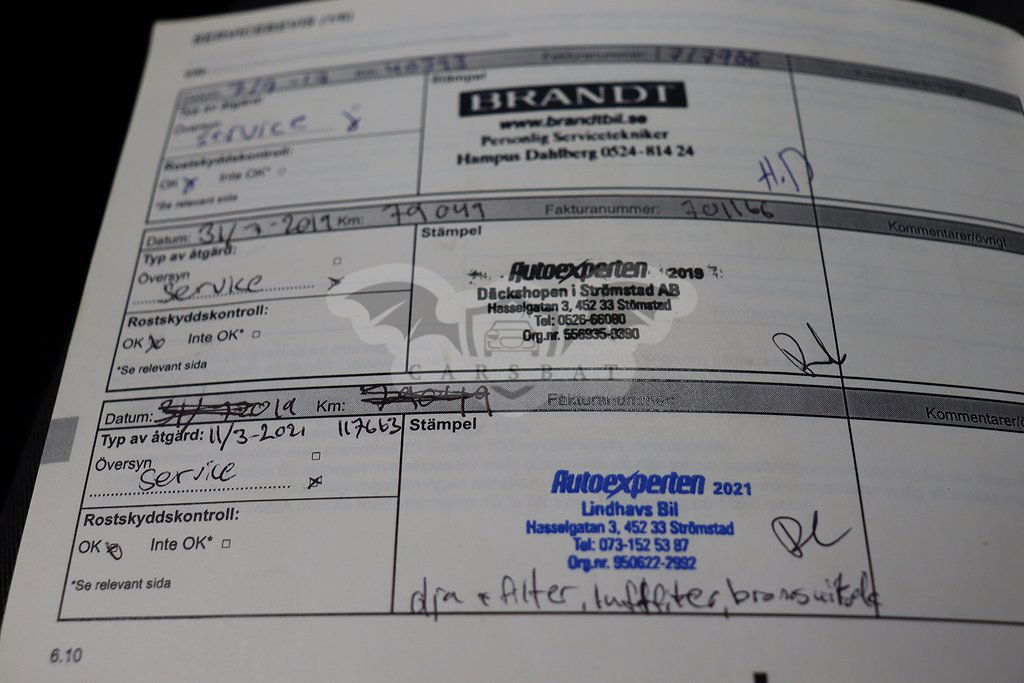 SERVICEBEVIS
Datum: Km: 40393 Fakturanummer:
Typ av åtgärd: Stämpel
Översyn
service
Rostskyddskontroll:
OK Inte OK*
*Se relevant sida
BRANDT
www.brandtbil.se
Personlig Servicetekniker
Hampus Dahlberg 0524-814 24
H.D
Datum: 31/7-2019 Km: 79049 Fakturanummer: 701166 Kommentarer/övrigt
Typ av åtgärd: Stämpel
Översyn
service
Rostskyddskontroll:
OK Inte OK*
*Se relevant sida
Autoexperten 2019
Däckshopen i Strömstad AB
Hasselgatan 3, 452 33 Stömstad
Tel: 0526-66080
Org.nr.
CARSBAT
Datum: 2019 Km: 79049 Fakturanummer: Kommentarer/
Typ av åtgärd: 11/3-2021 117663 Stämpel
Översyn
service
Rostskyddskontroll:
OK Inte OK*
*Se relevant sida
Autoexperten 2021
Lindhavs Bil
Hasselgatan 3, 452 33 Strömstad
Tel: 073-152 53 87
Org.nr. 950622-2992
filter,
6.10